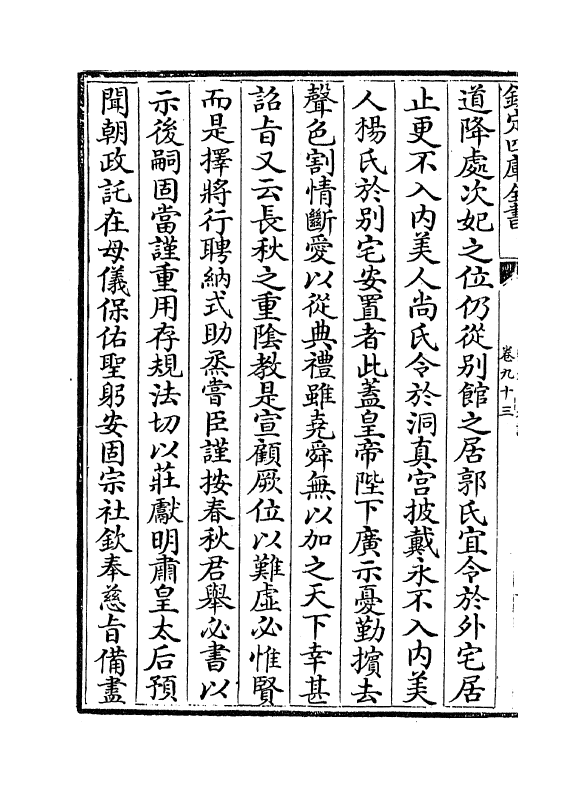 欽定四庫全書
卷九十三
道降處次妃之位仍從別館之居郭氏宜令於外宅居
止更不入內美人尚氏令於洞真宫披戴永不入內美
人楊氏於別宅安置者此蓋皇帝陛下廣示憂勤擯去
聲色割情斷愛以從典禮雖堯舜無以加之天下幸甚
詔㫖又云長秋之重陰教是宣顧厥位以難虛必惟賢
而是擇將行聘納式助烝嘗臣謹按春秋君舉必書以
示後嗣固當謹重用存規法切以莊獻明肅皇太后預
聞朝政託在母儀保佑聖躬安固宗社欽奉慈㫖備盡